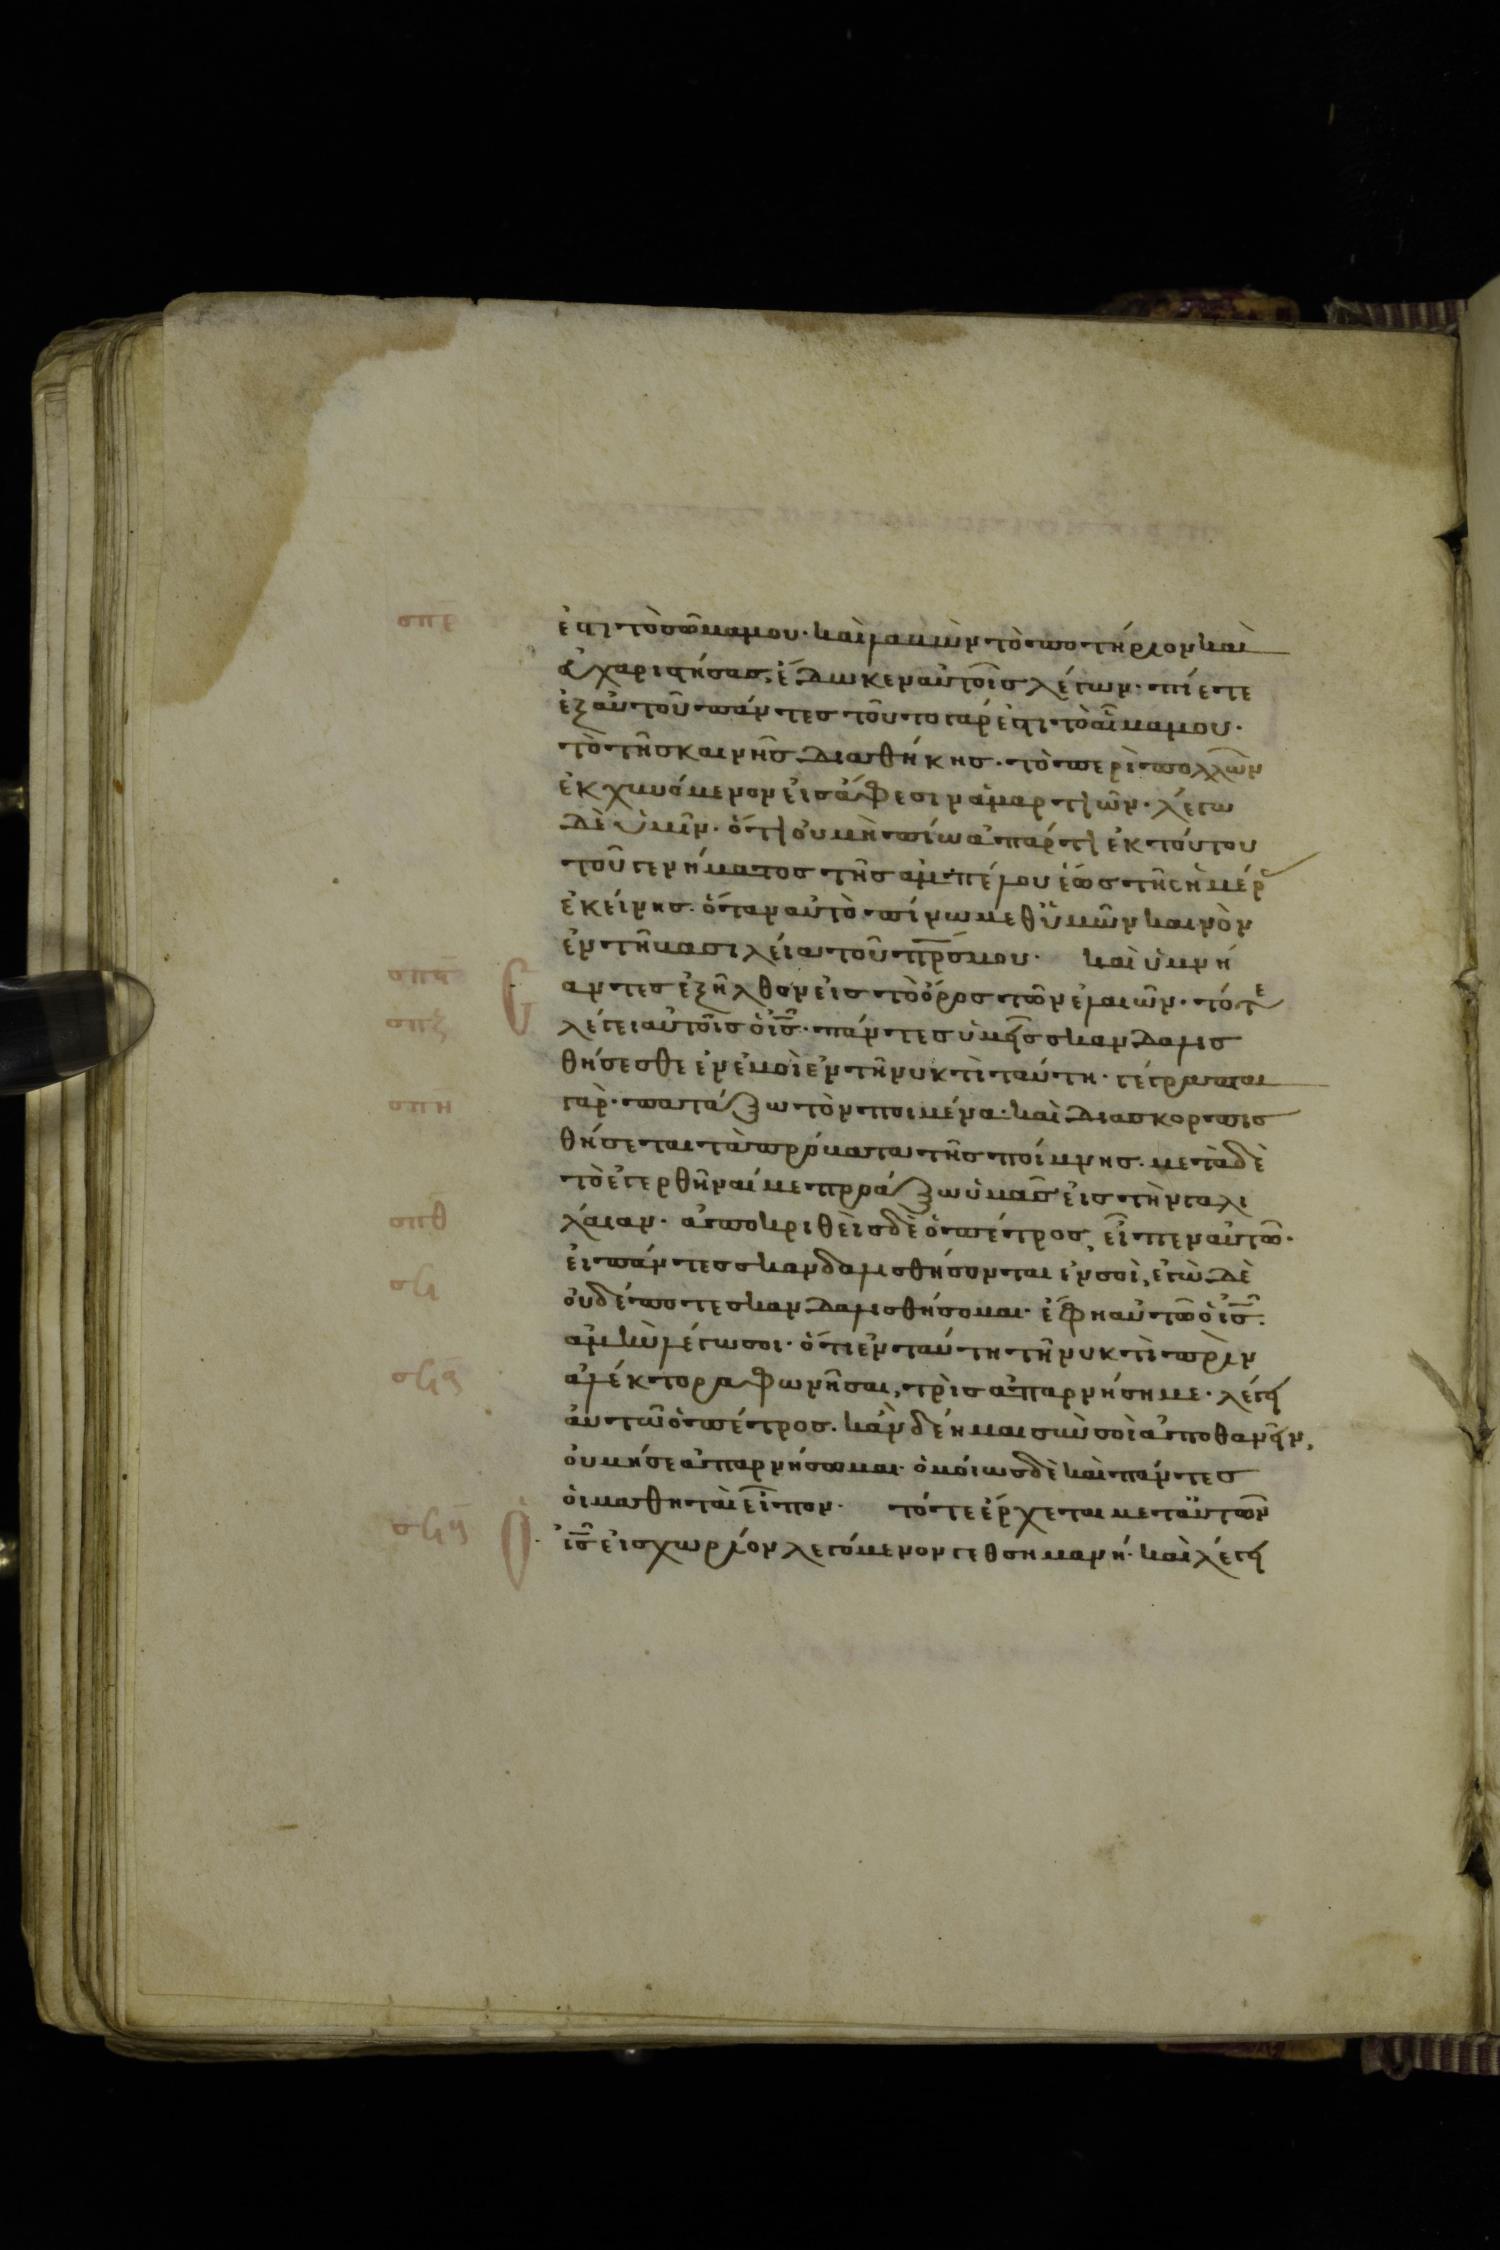 σπε ἐστι τὸ σῶμα μου· καὶ λαβὼν τὸ ποτήριον καὶ
εὐχαριστήσας, ἔδωκεν αὐτοῖς λέγων· πίετε
ἐξ αὐτοῦ πάντες τοῦτο γάρ ἐστι τὸ αἷμα μου·
τὸ τῆς καινῆς διαθήκης· τὸ περὶ πολλῶν
ἐκχυνόμενον εἰς ἄφεσιν ἁμαρτιῶν· λέγω
δὲ ὑμῖν· ὅτι οὐ μὴ πίω ἀπάρτι ἐκ τούτου
τοῦ γενήματος τῆς ἀμπέλου ἕως τῆς ἡμέρ
ἐκείνης· ὅταν αὐτὸ πίνω μεθ ὑμῶν καινὸν
ἐν τῆ βασιλεία τοῦ πρ̅ς μου· καὶ ὑμνή
σπϛ αντες ἐξῆλθον εἰς τὸ ὄρος τῶν ἐλαιῶν· τότε
σπζ λέγει αὐτοῖς ὁ ἰ̅ς· πάντες ὑμεῖς σκανδαλισ
θήσεσθε ἐν ἐμοὶ ἐν τῆ νυκτὶ ταύτη· γέγραπται
σπη γὰρ· πατάξω τὸν ποιμένα· καὶ διασκορπισ
θήσεται τὰ πρόβατα τῆς ποίμνης· μετὰ δὲ
τὸ ἐγερθῆναί με προάξω ὑμᾶς εἰς τὴν γαλι
σπθ λαίαν· ἀποκριθεὶς δὲ ὁ πέτρος, εἶπεν αὐτῶ·
εἰ πάντες σκανδαλισθήσονται ἐν σοὶ, ἐγὼ δὲ
σϟ οὐδέποτε σκανδαλισθήσομαι· ἔφη αὐτῶ ὁ ἰ̅ς·
ἀμὴν λέγω σοι· ὅτι ἐν ταύτη τῆ νυκτὶ πρὶν
σϟα ἀλέκτορα φωνῆσαι, τρὶς ἀπαρνήση με· λέγει
αὐτῶ ὁ πέτρος· κἂν δέη με σὺν σοὶ ἀποθανεῖν,
οὐ μή σε ἀπαρνήσωμαι· ὁμοίως δὲ καὶ πάντες
οἱ μαθηταὶ εἶπον· τότε ἔρχεται μετ αὐτῶν
σϟβ ὁ ἰ̅ς εἰς χωρίον λεγόμενον γεθσημανή· καὶ λέγει